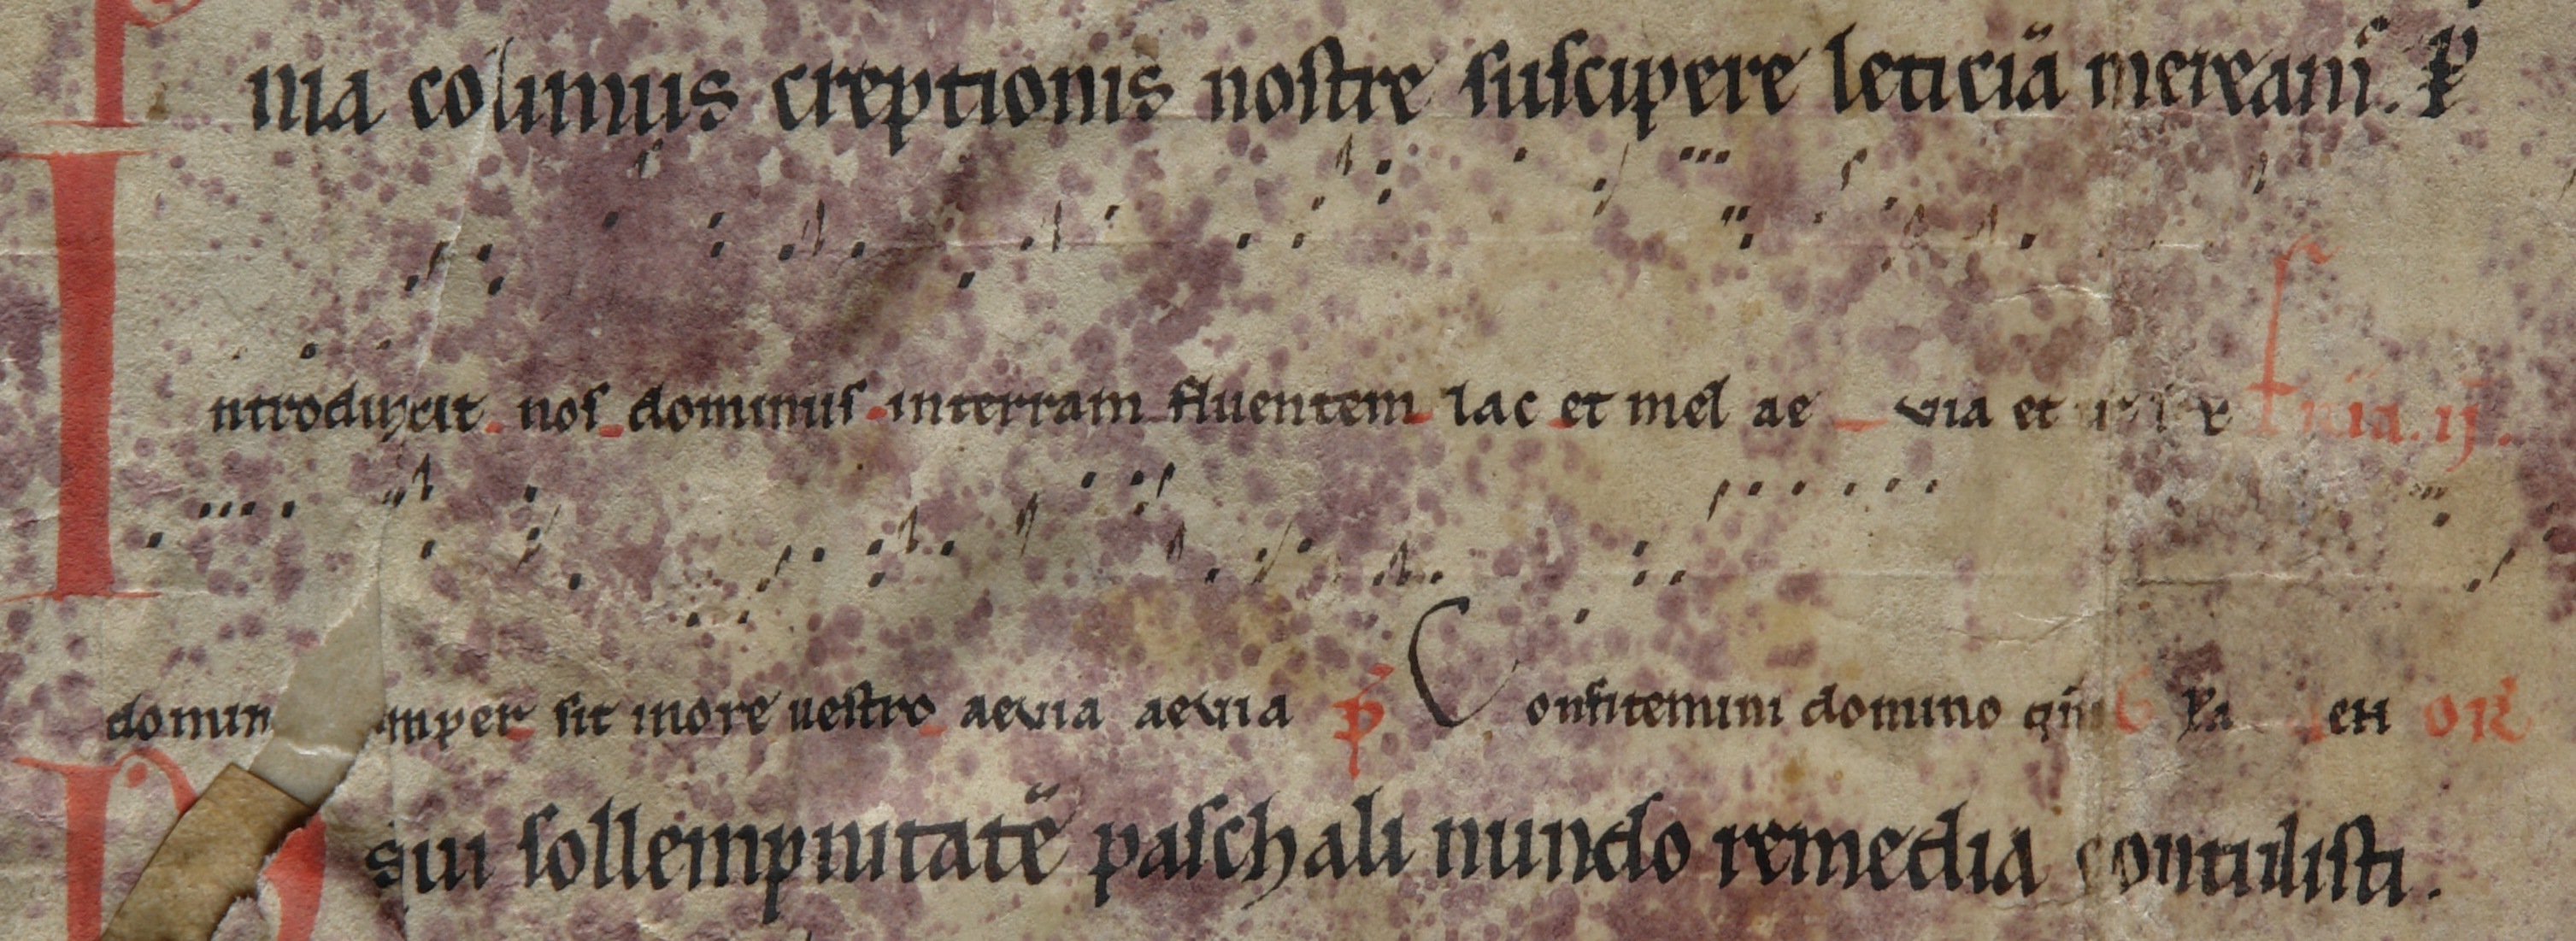 nia colimus ereptionis nostre suscipere leticiā mereamˀ. P
Introduxit nos dominus interram fluentem lac et mel aevia et ut lex feria. ij.
domini semper sit inore uestro aevia aevia p̄ Confitemini domino qm̄ G Pa eti OR
D qui sollempnitatē paschali mundo remedia contulisti.